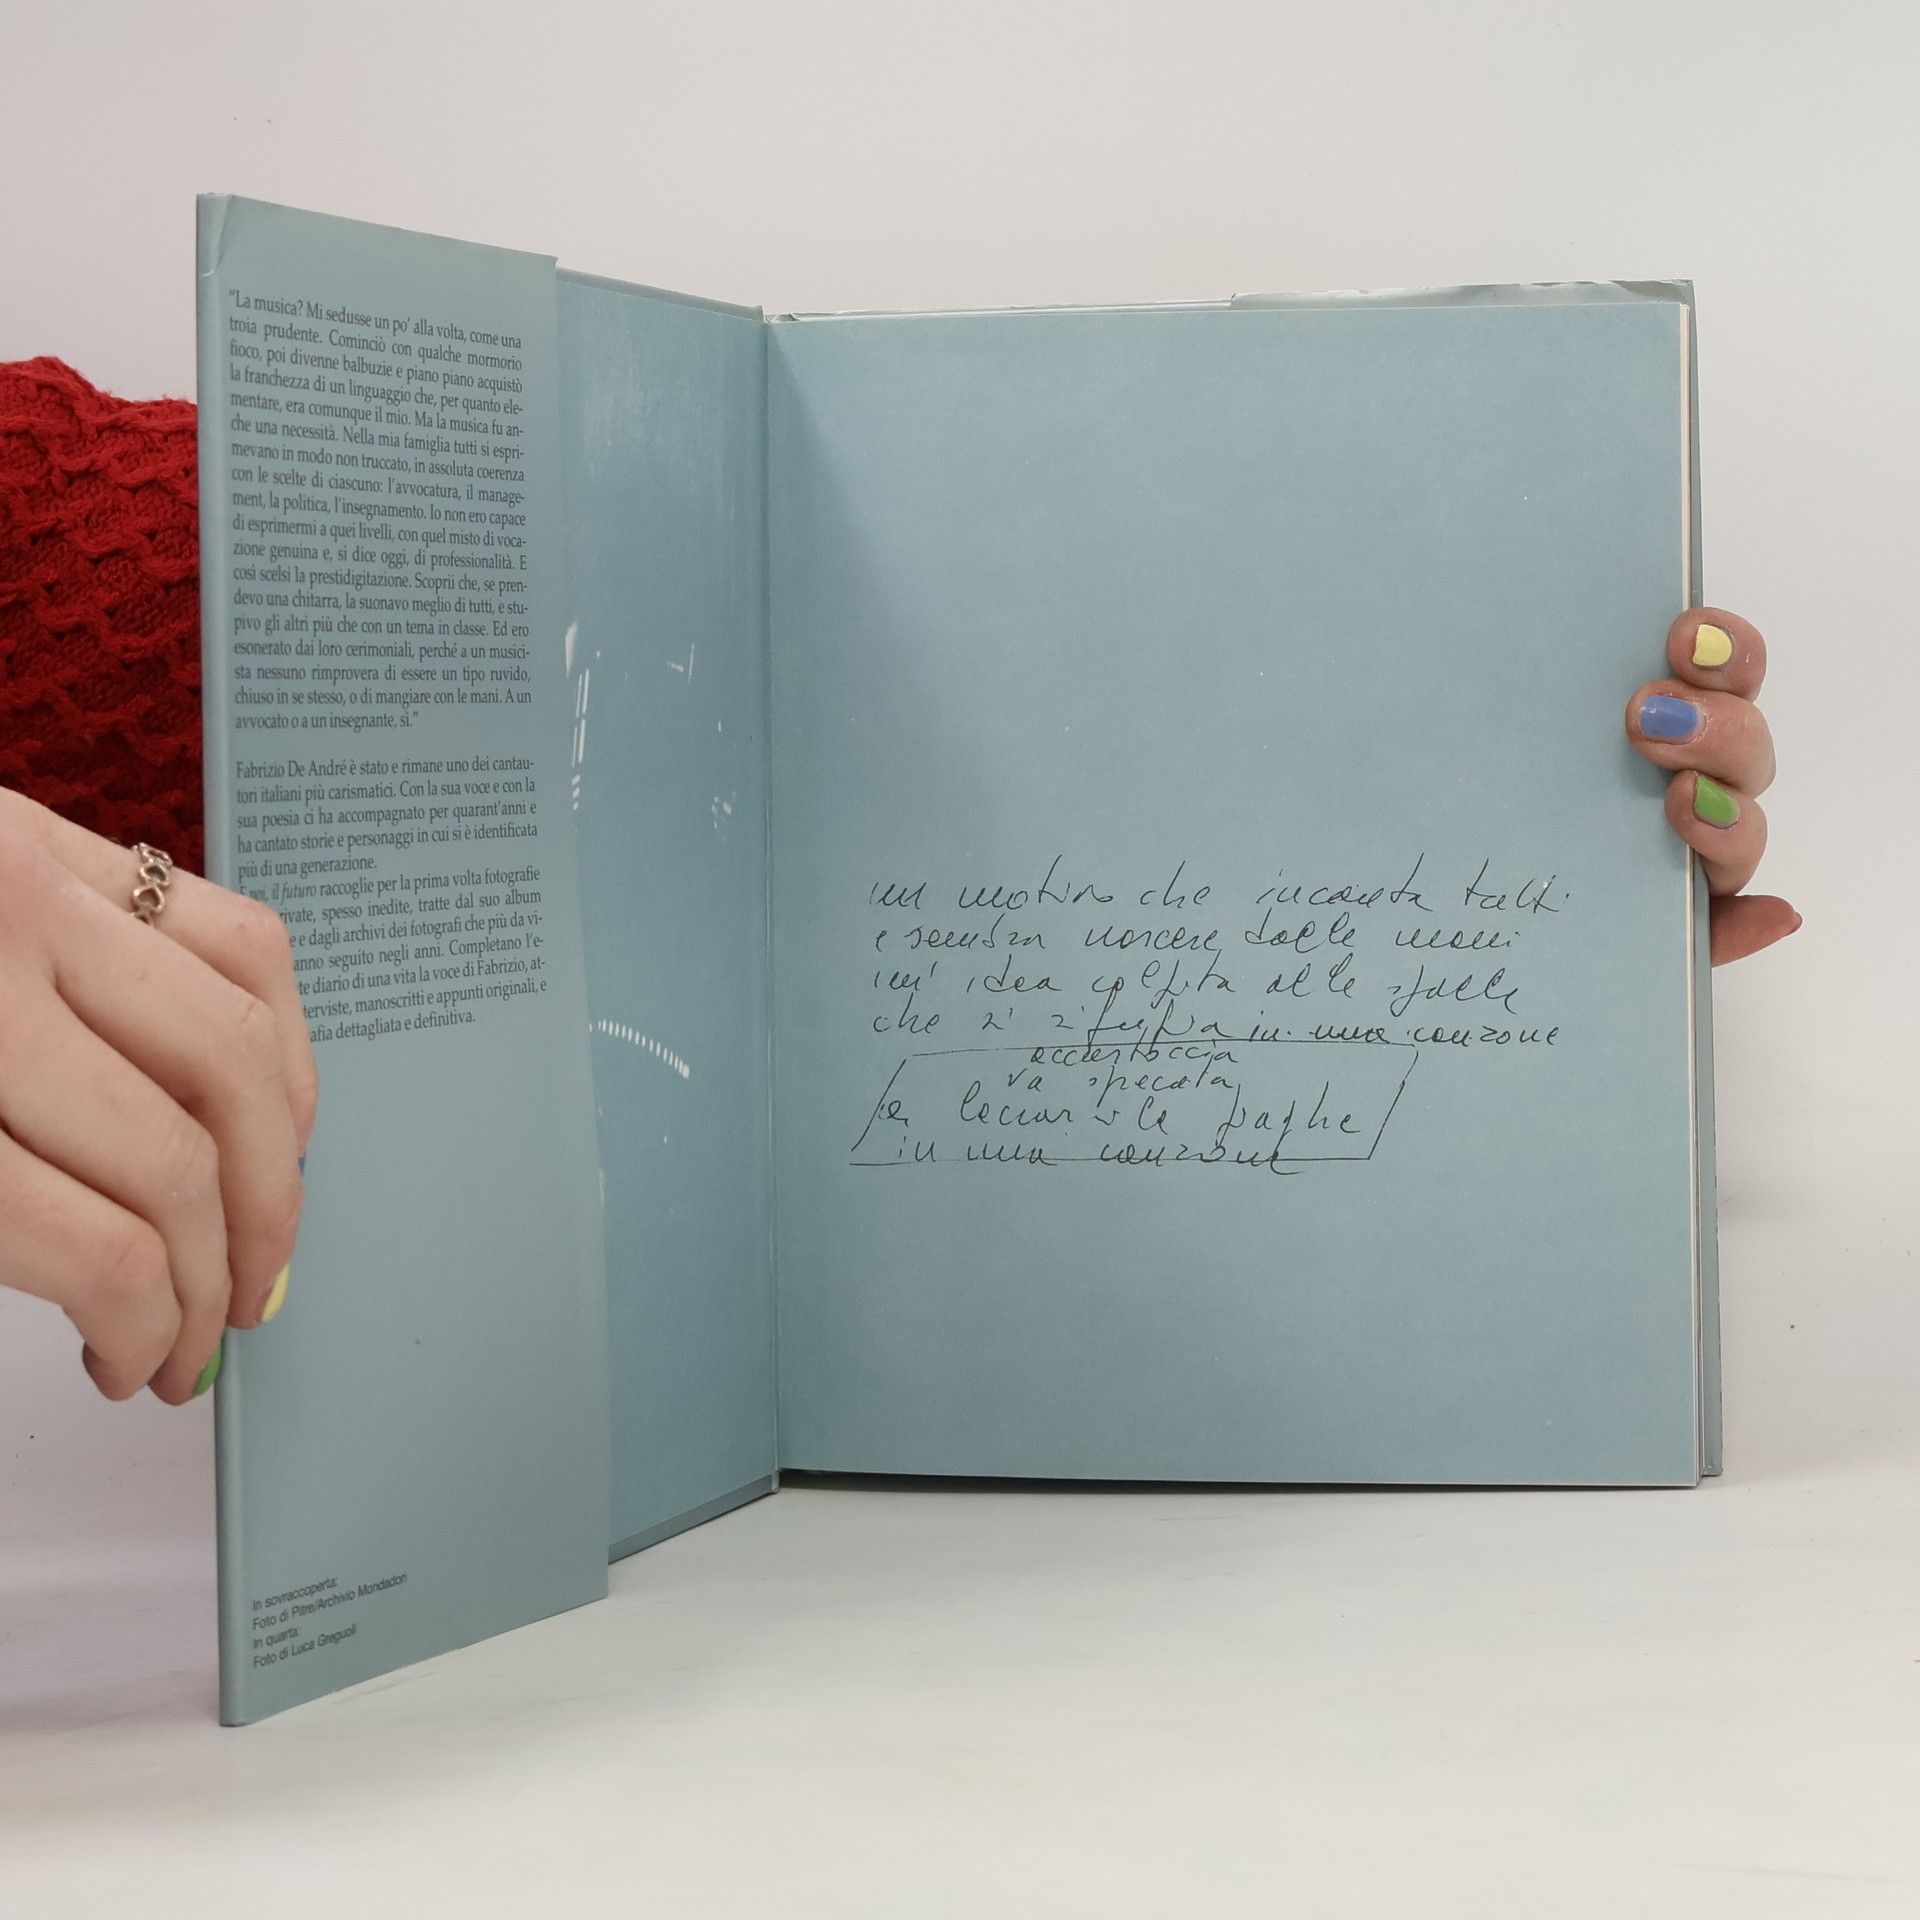 "La musica? Mi sedusse un po' alla volta, come una
troia prudente. Cominciò con qualche mormorio
fioco, poi divenne balbuzie e piano piano acquistò
la franchezza di un linguaggio che, per quanto ele-
mentare, era comunque il mio. Ma la musica fu an-
che una necessità. Nella mia famiglia tutti si espri-
mevano in modo non truccato, in assoluta coerenza
con le scelte di ciascuno: l'avvocatura, il manage-
ment, la politica, l'insegnamento. Io non ero capace
di esprimermi a quei livelli, con quel misto di voca-
zione genuina e, si dice oggi, di professionalità. E
così scelsi la prestidigitazione. Scoprii che, se pren-
devo una chitarra, la suonavo meglio di tutti, e stu-
pivo gli altri più che con un tema in classe. Ed ero
esonerato dai loro cerimoniali, perché a un musici-
sta nessuno rimprovera di essere un tipo ruvido,
chiuso in se stesso, o di mangiare con le mani. A un
avvocato o a un insegnante, sì."
Fabrizio De André è stato e rimane uno dei cantau-
tori italiani più carismatici. Con la sua voce e con la
sua poesia ci ha accompagnato per quarant'anni e
ha cantato storie e personaggi in cui si è identificata
più di una generazione.
il futuro raccoglie per la prima volta fotografie
rivate, spesso inedite, tratte dal suo album
e e dagli archivi dei fotografi che più da vi-
anno seguito negli anni. Completano l'e-
te diario di una vita la voce di Fabrizio, at-
terviste, manoscritti e appunti originali, e
afia dettagliata e definitiva.
In sovraccoperta:
Foto di Pitre/Archivio Mondadori
In quarta:
Foto di Luca Greguoli
un motivo che incanta tutti
e sembra nascere dalle mani
un' idea colpita alle spalle
che si in una canzone
accartoccia
va specata
le paghe
in una canzone